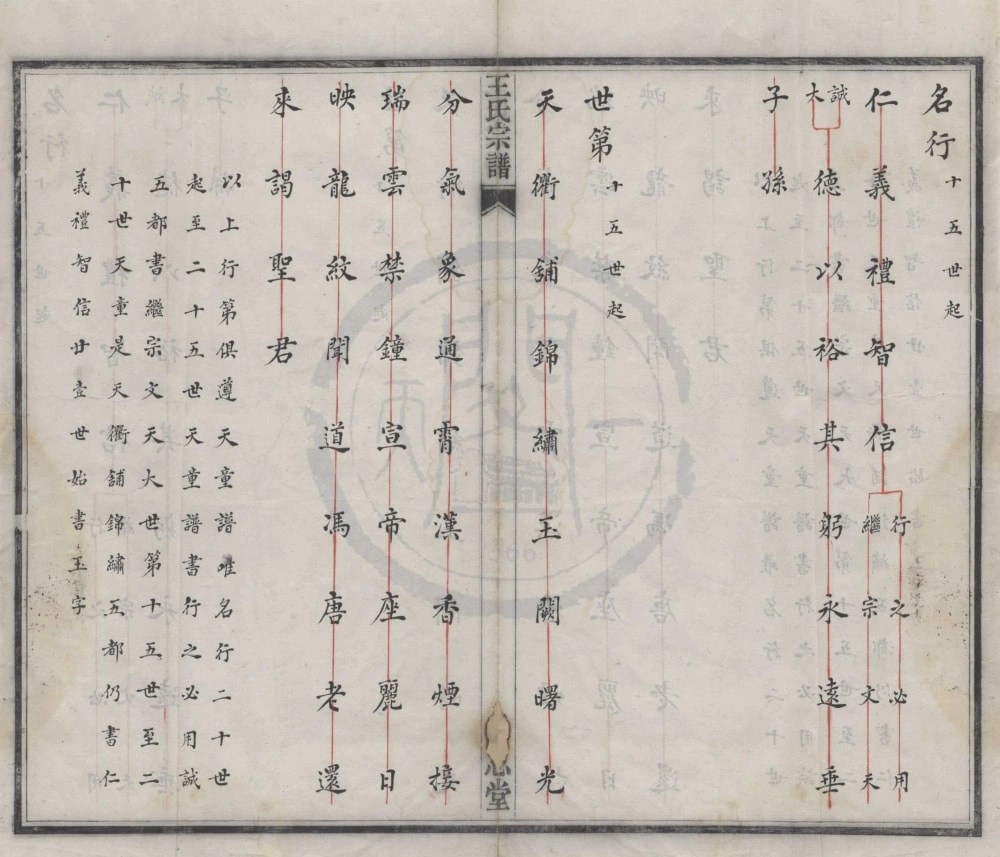 名行 十五世起
仁義禮智信 行之必用
繼宗文天
誠
大
德以裕其躬永遠垂
子孫
世第 十五世起
天衢舖錦繡玉闕曙光
王氏宗譜
堂
分氣象通霄漢香煙接
瑞雲禁鐘宣帝座麗日
映龍紋聞道馮唐老還
來謁聖君
以上行第俱遵天童譜唯名行二十世
起至二十五世天童譜書行之必用誠
五都書繼宗文天大世第十五世至二
十世天童是天衢舖錦繡五都仍書仁
義禮智信廿壹世始書玉字